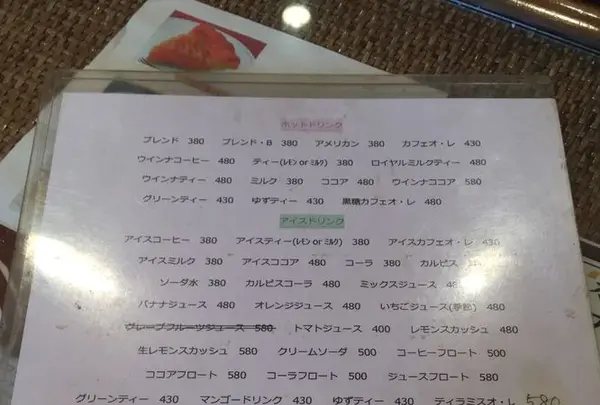 ホットドリンク
ブレンド 380 ブレンド・B 380 アメリカン 380 カフェオ・レ 430
ウインナコーヒー 480 ティー(ﾚﾓﾝ or ﾐﾙｸ) 380 ロイヤルミルクティー 480
ウインナティー 480 ミルク 380 ココア 480 ウインナココア 580
グリーンティー 430 ゆずティー 430 黒糖カフェオ・レ 480
アイスドリンク
アイスコーヒー 380 アイスティー(ﾚﾓﾝ or ﾐﾙｸ) 380 アイスカフェオ・レ 430
アイスミルク 380 アイスココア 480 コーラ 380 カルピス
ソーダ水 380 カルピスコーラ 430 ミックスジュース 480
バナナジュース 480 オレンジジュース 480 いちごジュース(季節) 480
グレープフルーツジュース 580 トマトジュース 400 レモンスカッシュ 480
生レモンスカッシュ 580 クリームソーダ 500 コーヒーフロート 500
ココアフロート 580 コーラフロート 500 ジュースフロート 580
グリーンティー 430 マンゴードリンク 430 ゆずティー 430 ティラミスオ・レ 580